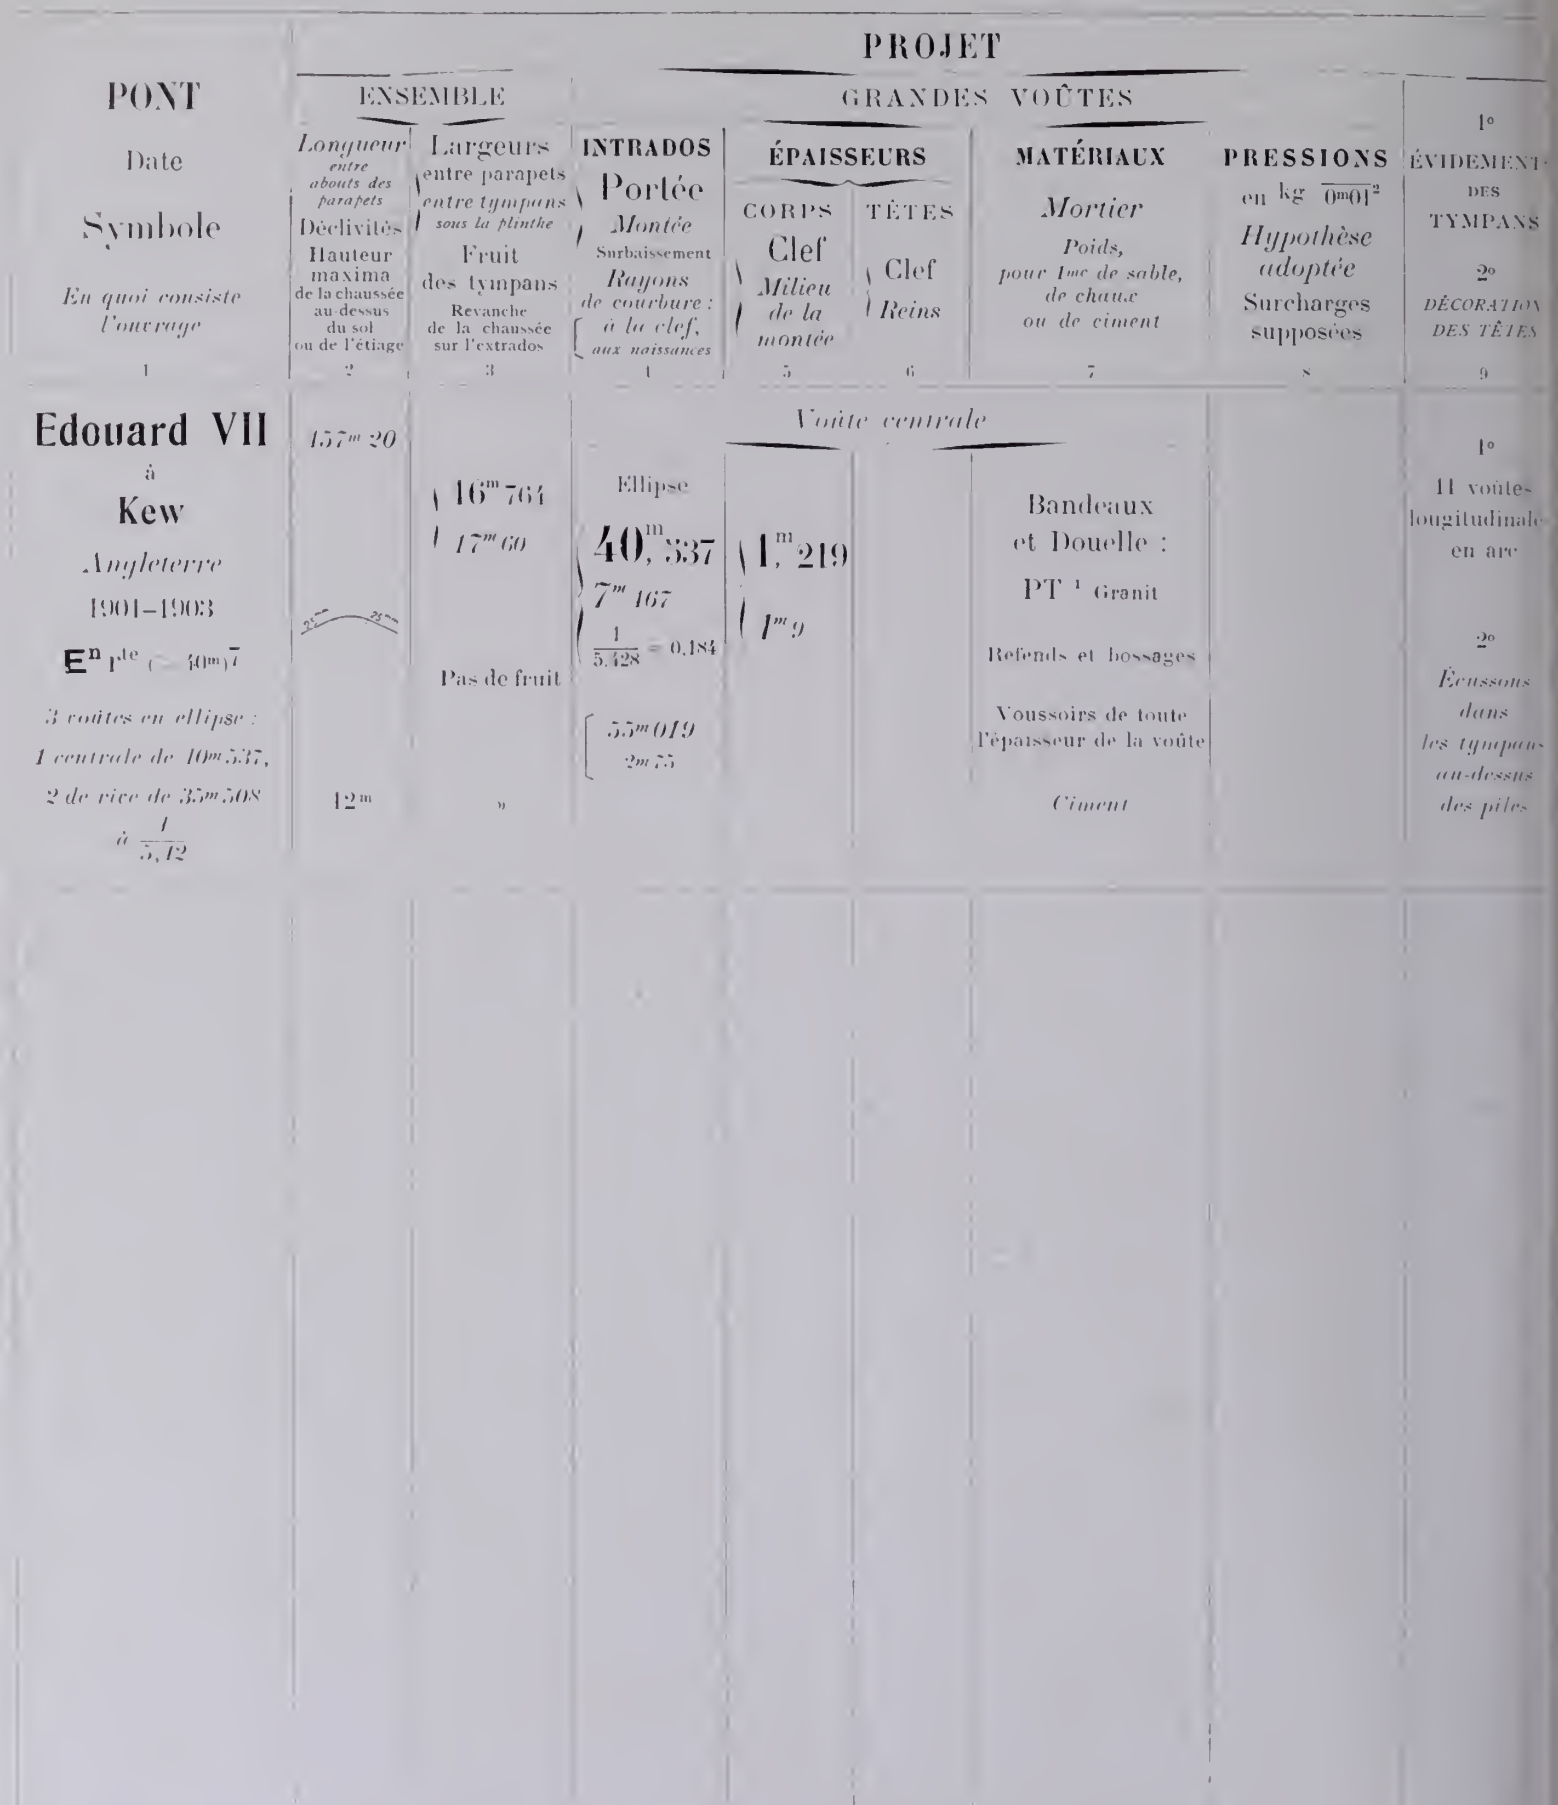 PROJET
PONT
Date
Symbole
En quoi consiste
l'ouvrage
1
ENSEMBLE
Longueur
entre
abouts des
parapets
Déclivités
Hauteur
maxima
de la chaussée
au-dessus
du sol
ou de l'étiage
2
Largeurs
entre parapets
entre tympans
sous la plinthe
Fruit
des tympans
Revanche
de la chaussée
sur l'extrados
3
GRANDES VOÛTES
INTRADOS
Portée
Montée
Surbaissement
Rayons
de courbure :
à la clef,
aux naissances
4
ÉPAISSEURS
CORPS
Clef
Milieu
de la
montée
5
TÊTES
Clef
Reins
6
MATÉRIAUX
Mortier
Poids,
pour 1mc de sable,
de chaux
ou de ciment
7
PRESSIONS
en kg 0m01²
Hypothèse
adoptée
Surcharges
supposées
8
1º
ÉVIDEMENT
DES
TYMPANS
2º
DÉCORATION
DES TÊTES
9
Edouard VII
à
Kew
Angleterre
1901–1903
3 voûtes en ellipse :
1 centrale de 40m537,
2 de rive de 35m508
à 1/5,42
157m20
25mm 25mm
12m
16m764
17m60
Pas de fruit
»
Voûte centrale
Ellipse
40,m537
7m467
1/5,428 = 0,184
55m019
2m75
1,m219
1m9
Bandeaux
et Douelle :
PT 1 Granit
Refends et bossages
Voussoirs de toute
l'épaisseur de la voûte
Ciment
1º
11 voûtes
longitudinales
en arc
2º
Écussons
dans
les tympans
au-dessus
des piles